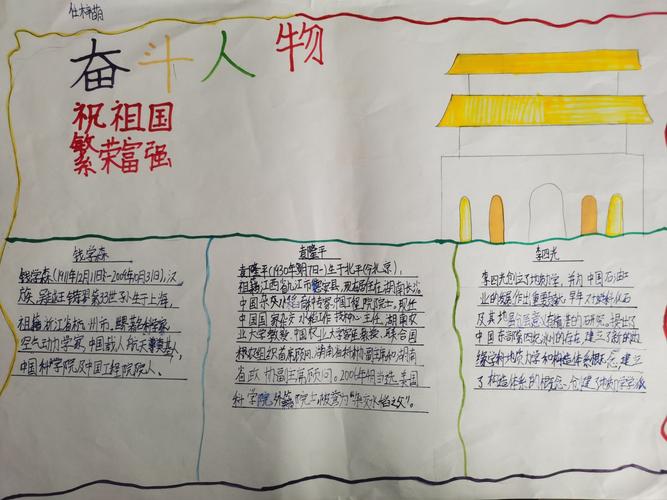 奋斗人物
祝祖国
繁荣富强
钱学森
钱学森(1911年12月11日-2009年10月31日),汉
族,吴越王钱镠第33世孙,生于上海,
祖籍浙江省杭州市。
空气动力学家,中国载人航天奠基人,
中国科学院及中国工程院院人。
袁隆平
袁隆平(1930年9月7日-)生于北平(今北京),
祖籍江西省九江市德安县,现居住在湖南长沙
中国杂交水稻育种专家,中国工程院院士。现任
中国国家杂交水稻工作技术中心主任,湖南农
业大学教授,中国农业大学客座教授,联合国
粮农组织首席顾问,湖南省科协副主席和湖南
省政协副主席顾问。2006年4月当选美国
科学院外籍院士,被誉为“杂交水稻之父”。
李四光
李四光创立了地质力学,并为中国石油工
业的发展作出重要贡献,早年对蜓科化石
及其地层
中国东部第四纪冰川的存在,建立了新的边
缘学科地质力学和构造体系概念,建立
了构造体系的概念。创建了地质力学学派